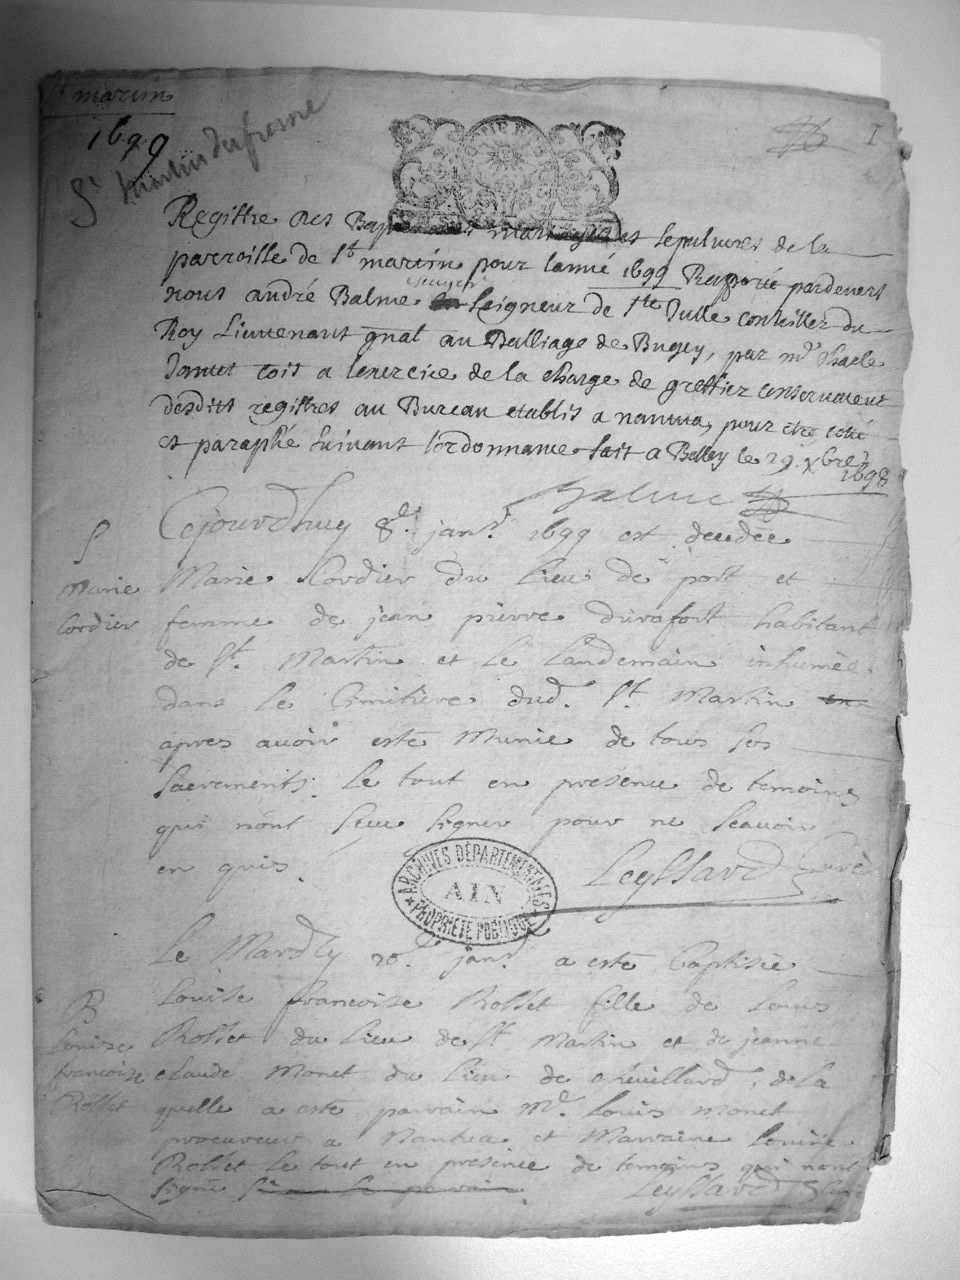 St martin
1699
St Martin du fresne
I
Registre des Baptesmes mariages et sepulures de la
parroisse de St martin pour lanné 1699 Raporté pardevers
nous andré Balme escuyer Seigneur de Ste Julle conseiller du
Roy Lieutenant gnal au Balliage de Bugey, par mr Charle
Janet cois a lexercice de la charge de greffier conservateur
desdits registres au Bureau etablis a nantua, pour etre coté
et paraphé suivant lordonnance fait a Belley le 29 xbre
1698
Balme
S
Marie
Cordier
Cejourdhuy 8e. janr. 1699 est decedée
Marie Cordier du Lieu de port et
femme de jean pierre Durafort habitant
de St. Martin et le Landemain inhumée
dans le Cimitière dud. St. Martin
apres avoir esté Munie de tous ses
sacrements. Le tout en presence de temoins
qui nont seeu signer pour ne scavoir
en quis.
Leyssard curé
ARCHIVES DÉPARTEMENTALES
AIN
PROPRIÉTÉ PUBLIQUE
B
Louise
francoise
Rosset
Le Mardy 20e janr. a esté Baptisée
Louise francoise Rosset fille de Louis
Rosset du Lieu de St Martin et de jeanne
claude Monet du Lieu de chevillard, de La
quelle a esté parrain Mr. Louis monet
procureur a Nantua et Marraine Louise
Rosset Le tout en présence de temoins qui nont
signé
Leyssard